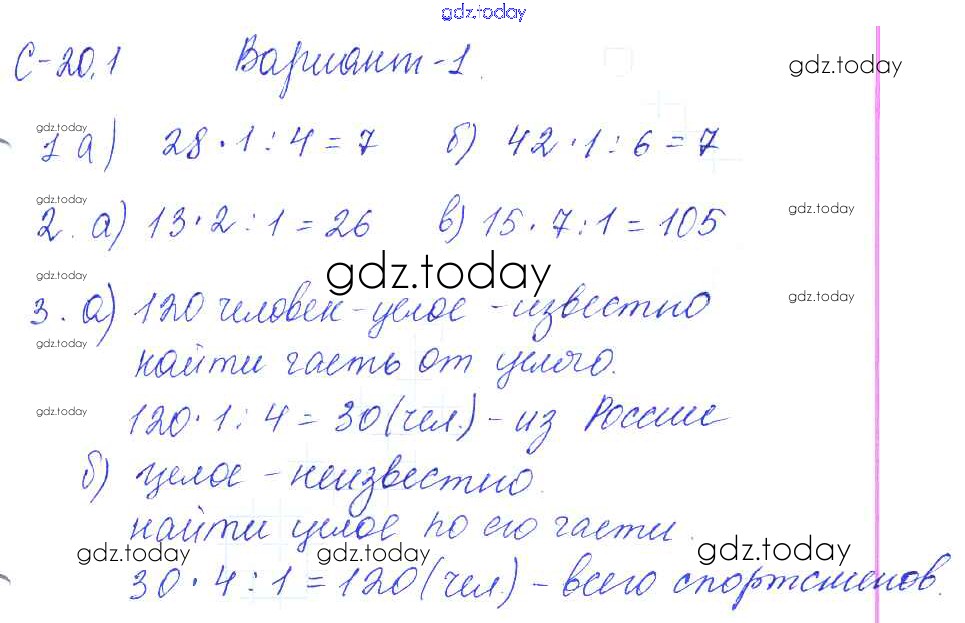 gdz.today
С-20.1 Вариант-1.
gdz.today
gdz.today
1 а) 28 · 1 : 4 = 7 б) 42 · 1 : 6 = 7
gdz.today
2. а) 13 · 2 : 1 = 26 в) 15 · 7 : 1 = 105
gdz.today
gdz.today
gdz.today
3. а) 120 человек - целое - известно
gdz.today
gdz.today
найти часть от целого.
gdz.today
120 · 1 : 4 = 30 (чел.) - из России
б) целое - неизвестно.
найти целое по его части.
gdz.today gdz.today gdz.today
30 · 4 : 1 = 120 (чел.) - всего спортсменов.